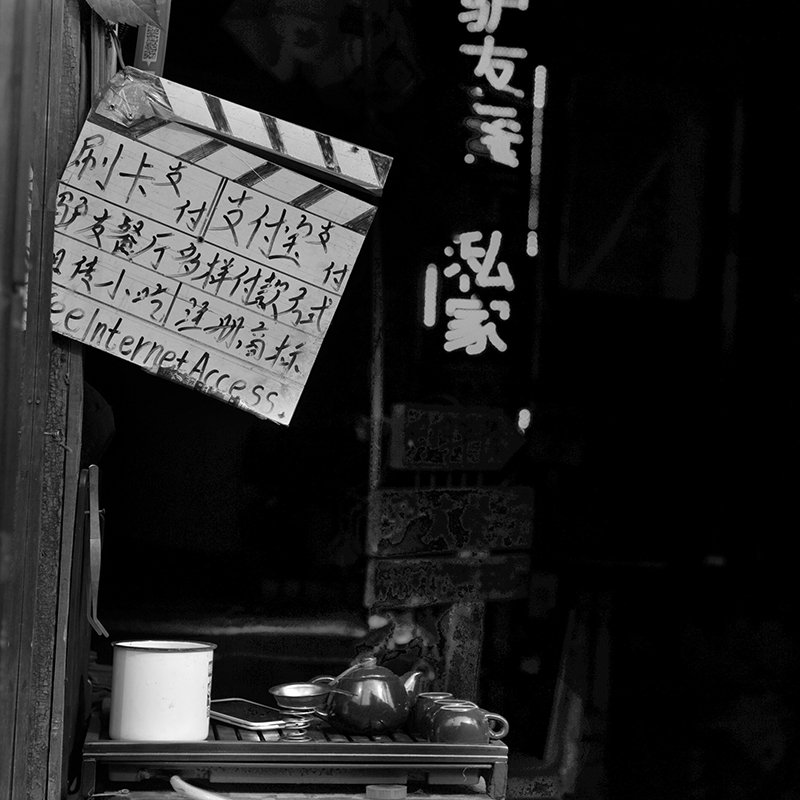 刷卡支付 支付宝支付
驴友餐厅多样付款方式
小吃|注册商标
ee Internet Access.
驴友
私家